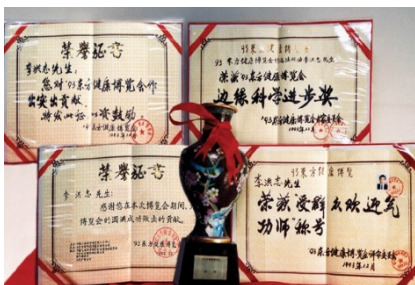 荣誉证书
李洪志先生：
您对'93东方健康博览会作
出突出贡献，
特发此证，以资鼓励
'93东方健康博览会
93东方健康博览会
荣获'93东方健康博览会
边缘科学进步奖
'93东方健康博览会评审委员会
1993年12月
荣誉证书
李洪志先生：
感谢您在本次博览会期间，
博览会的圆满成功做出的贡献。
'93东方健康博览会
93东方健康博览
李洪志先生
荣获受群众欢迎气
功师称号
'93东方健康博览会评审委员会
1993年12月